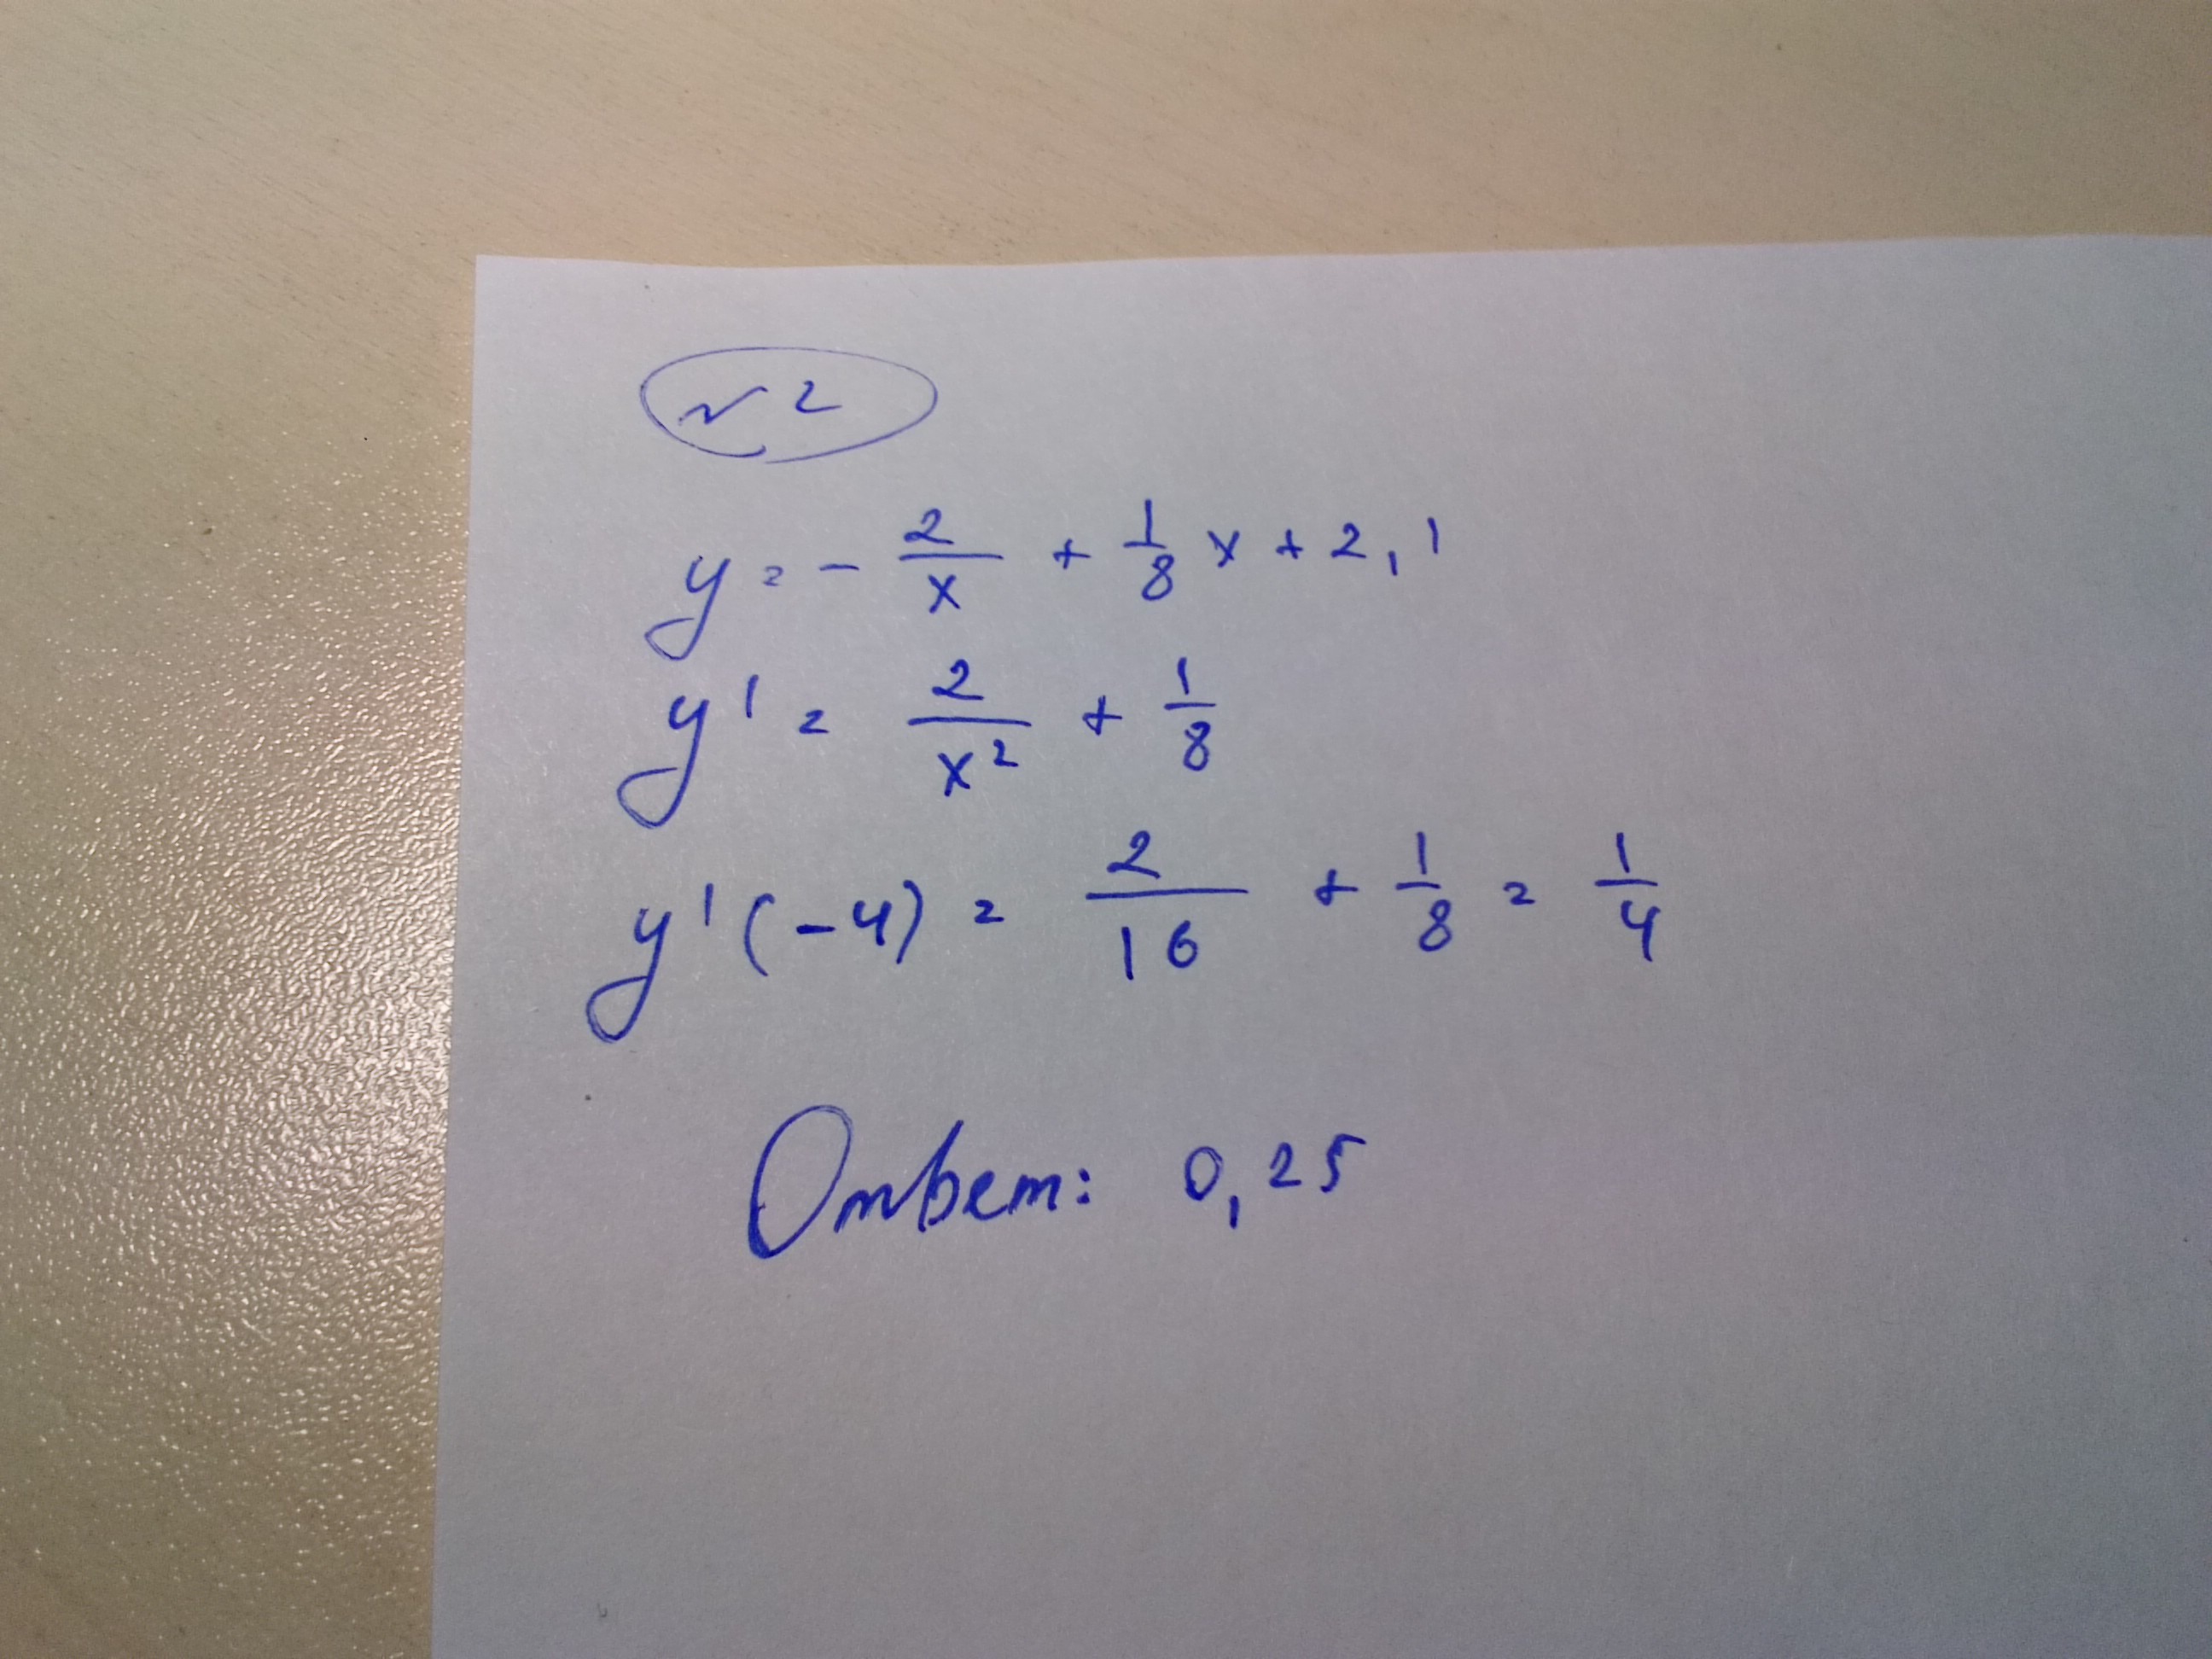 № 2
y = - 2/x + 1/8 x + 2,1
y' = 2/x² + 1/8
y'(-4) = 2/16 + 1/8 = 1/4
Ответ: 0,25